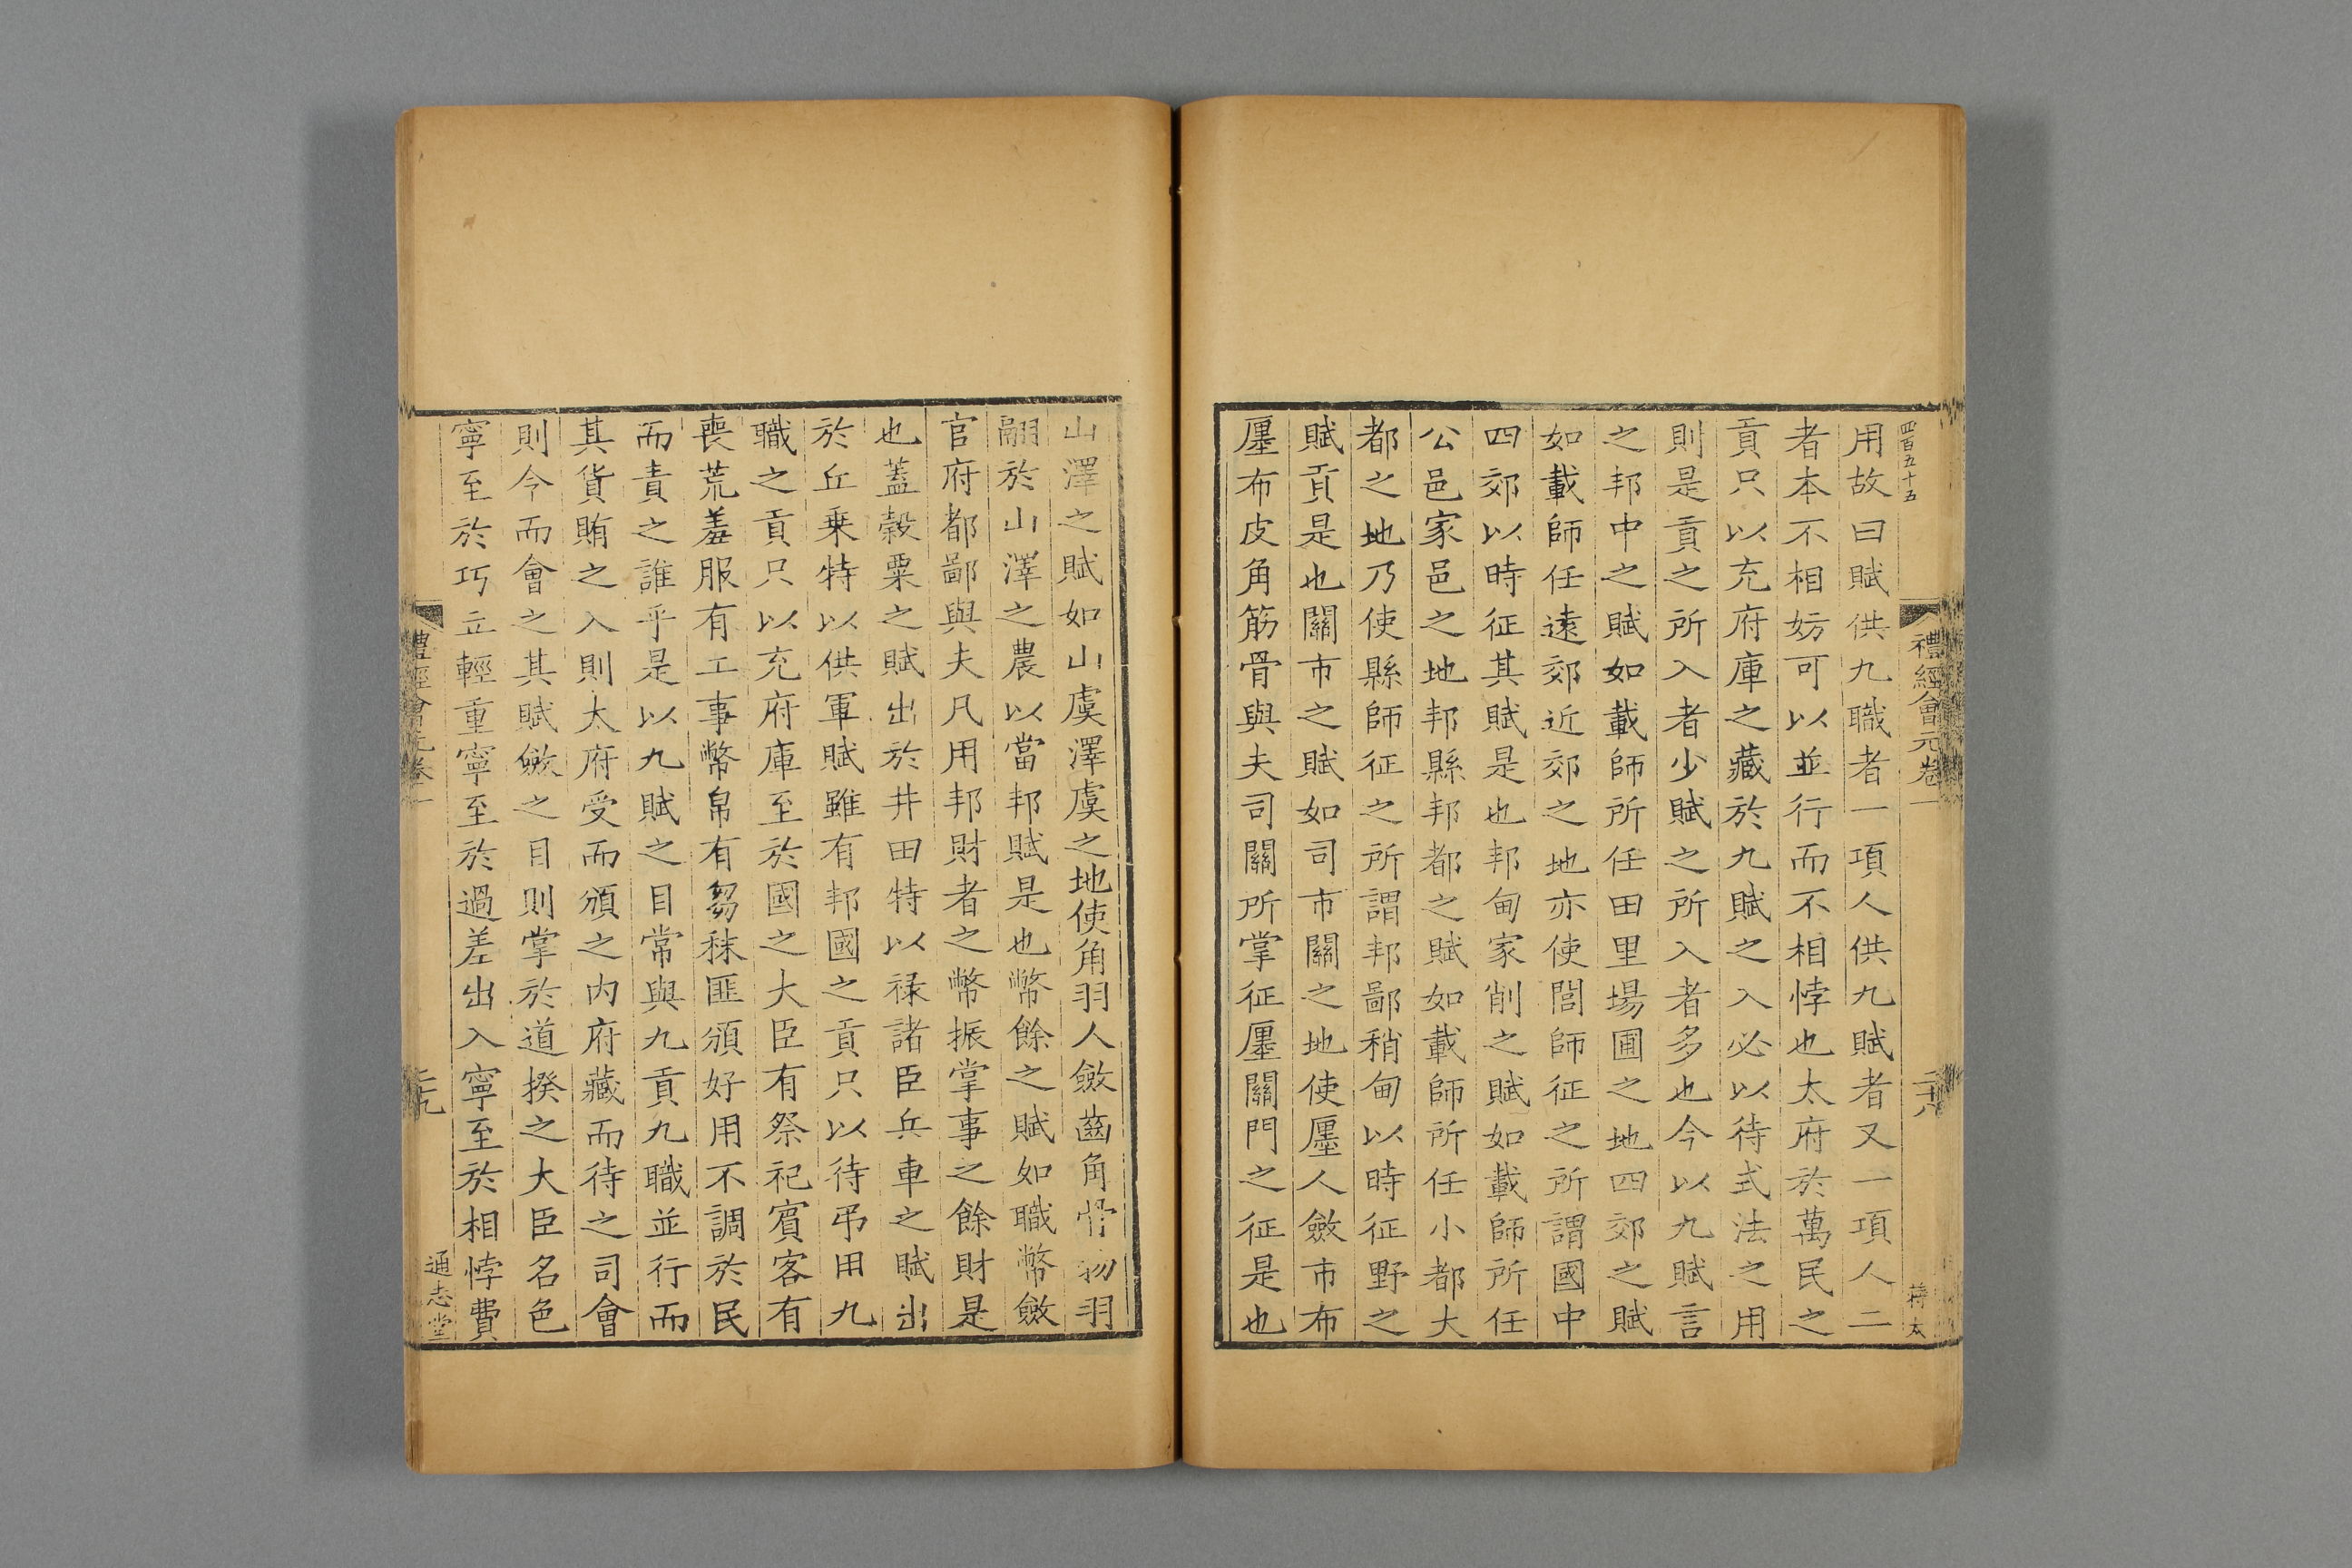 四百五十五
禮經會元卷一
用故曰賦供九職者一項人供九賦者又一項人二
者本不相妨可以並行而不相悖也太府於萬民之
貢只以充府庫之藏於九賦之入必以待式法之用
則是貢之所入者少賦之所入者多也今以九賦言
之邦中之賦如載師所任田里場圃之地四郊之賦
如載師任遠郊近郊之地亦使閭師征之所謂國中
四郊以時征其賦是也邦甸家削之賦如載師所任
公邑家邑之地邦縣邦都之賦如載師所任小都大
都之地乃使縣師征之所謂邦鄙稍甸以時征野之
賦貢是也關市之賦如司市關之地使廛人斂市布
廛布皮角筋骨與夫司關所掌征廛關門之征是也
山澤之賦如山虞澤虞之地使角羽人斂齒角骨物羽
翮於山澤之農以當邦賦是也幣餘之賦如職幣斂
官府都鄙與夫凡用邦財者之幣振掌事之餘財是
也蓋穀粟之賦出於井田特以祿諸臣兵車之賦出
於丘乗特以供軍賦雖有邦國之貢只以待弔用九
職之貢只以充府庫至於國之大臣有祭祀賓客有
喪荒羞服有工事幣帛有芻秣匪頒好用不調於民
而責之誰乎是以九賦之目常與九貢九職並行而
其貨賄之入則太府受而頒之内府藏而待之司會
則今而會之其賦斂之目則掌於道揆之大臣名色
寧至於巧立輕重寧至於過差出入寧至於相悖費
禮經會元卷一
通志堂